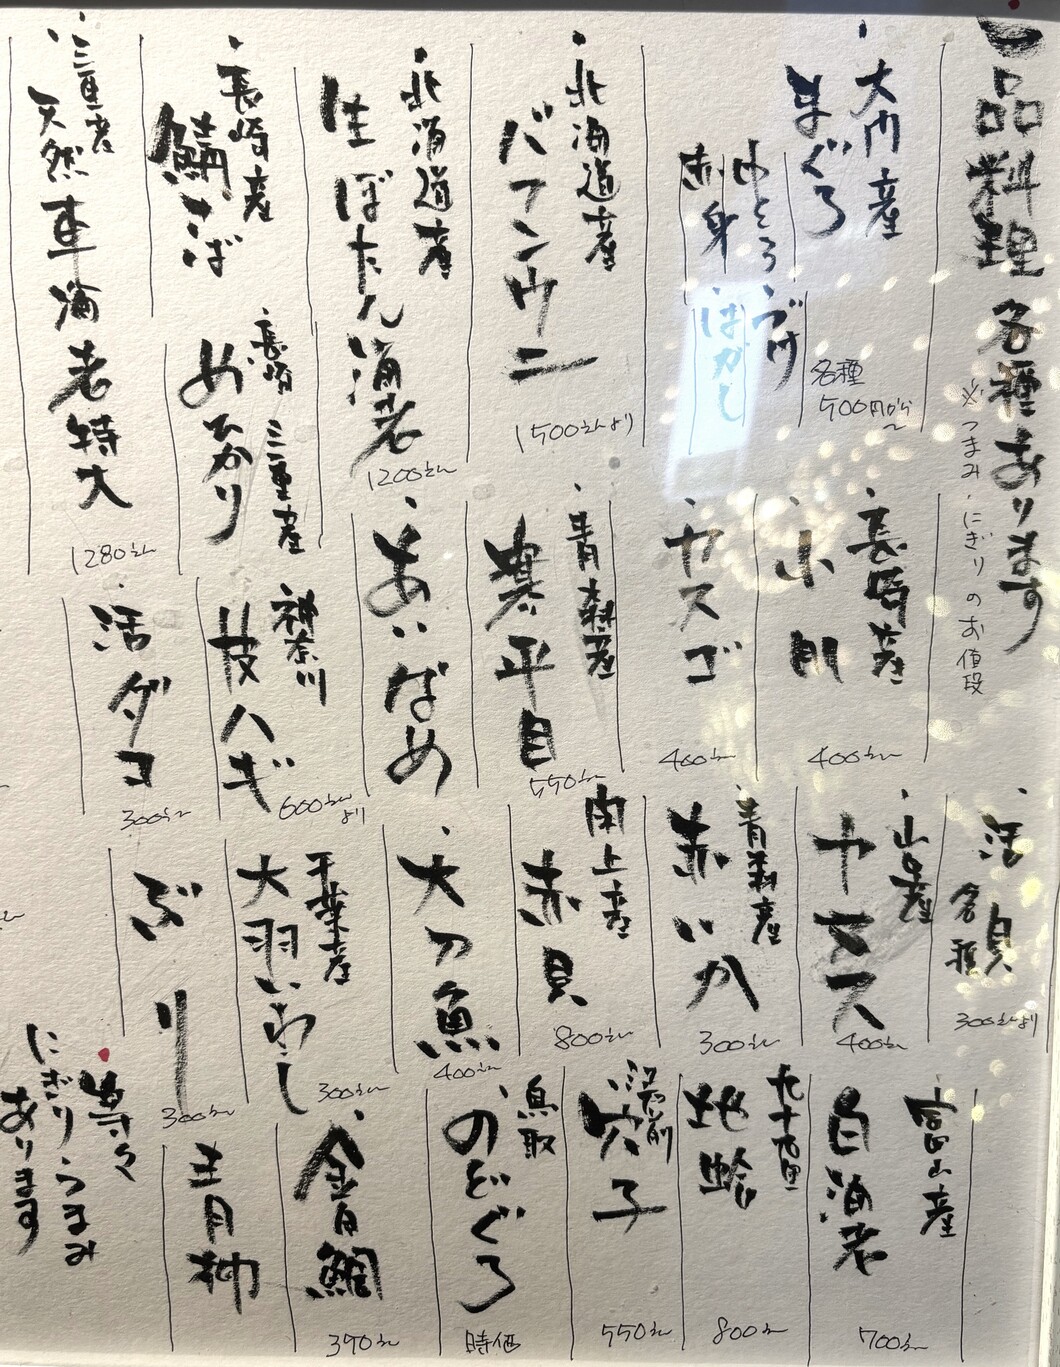 一品料理 各種あります
※つまみ・にぎりのお値段
大間産
まぐろ
中とろ
赤身
づけ
はがし
各種
500円から
北海道産
バフンウニ
1500えんより
北海道産
生ぼたん海老
1200えん
長崎産
鯖さば
三重産
天然車海老特大
1280えん
長崎産
小肌
400えん
カスゴ
400えん
青森産
寒平目
550えん
あいなめ
長崎
三重産
めひかり
神奈川
皮ハギ
600えんより
活ダコ
300えん
活貝
各種
300えんより
山口産
キス
400えん
青森産
赤いか
300えん
閖上産
赤貝
800えん
太刀魚
400えん
千葉産
大羽いわし
300えん
ぶり
300えん
富山産
白海老
700えん
九十九里
地蛤
800えん
江戸前
穴子
550えん
鳥取
のどぐろ
時価
金目鯛
390えん
青柳
等々
にぎりつまみ
あります